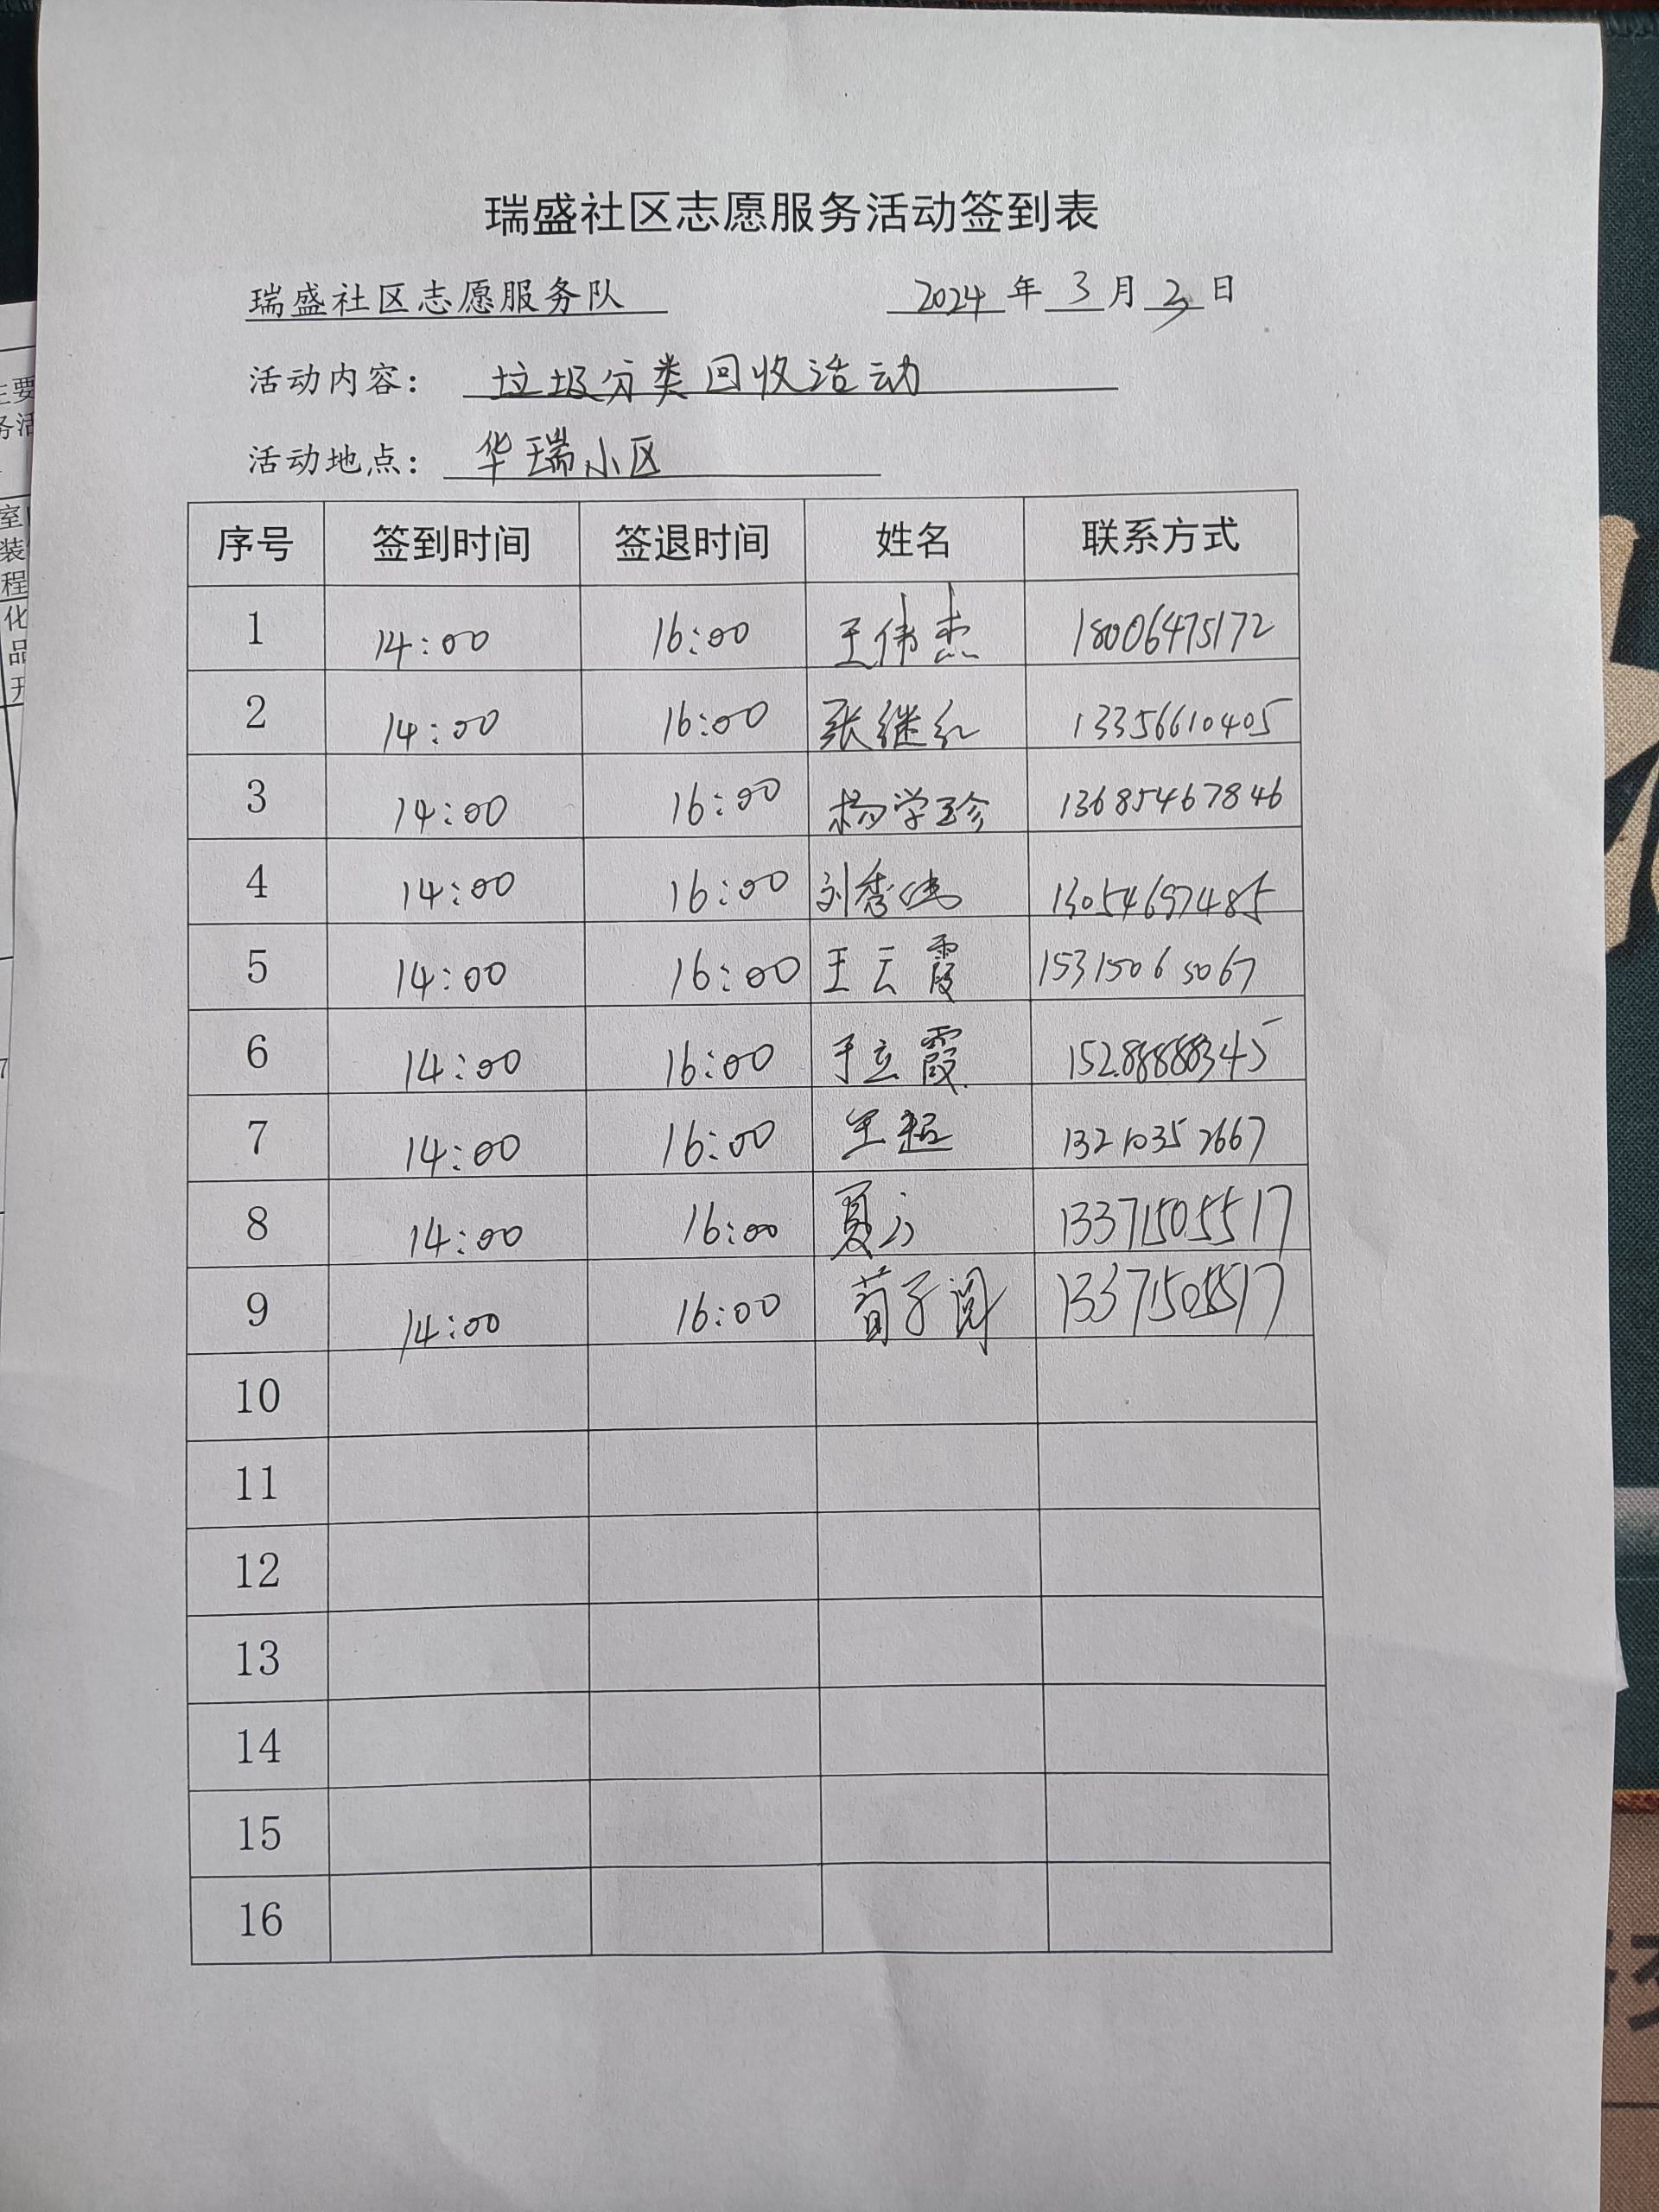 瑞盛社区志愿服务活动签到表
瑞盛社区志愿服务队 2024 年 3 月 日
活动内容： 垃圾分类回收活动
活动地点： 华瑞小区
序号 签到时间 签退时间 姓名 联系方式
1 14:00 16:00 王伟杰 18006475172
2 14:00 16:00 张继红 13356610405
3 14:00 16:00 杨学珍 13685467846
4 14:00 16:00 刘秀 13054697485
5 14:00 16:00 王云霞 15315065067
6 14:00 16:00 于立霞 15288888345
7 14:00 16:00 王超 13210352667
8 14:00 16:00 夏云 13371505517
9 14:00 16:00 荀子阅 13371505517
10
11
12
13
14
15
16